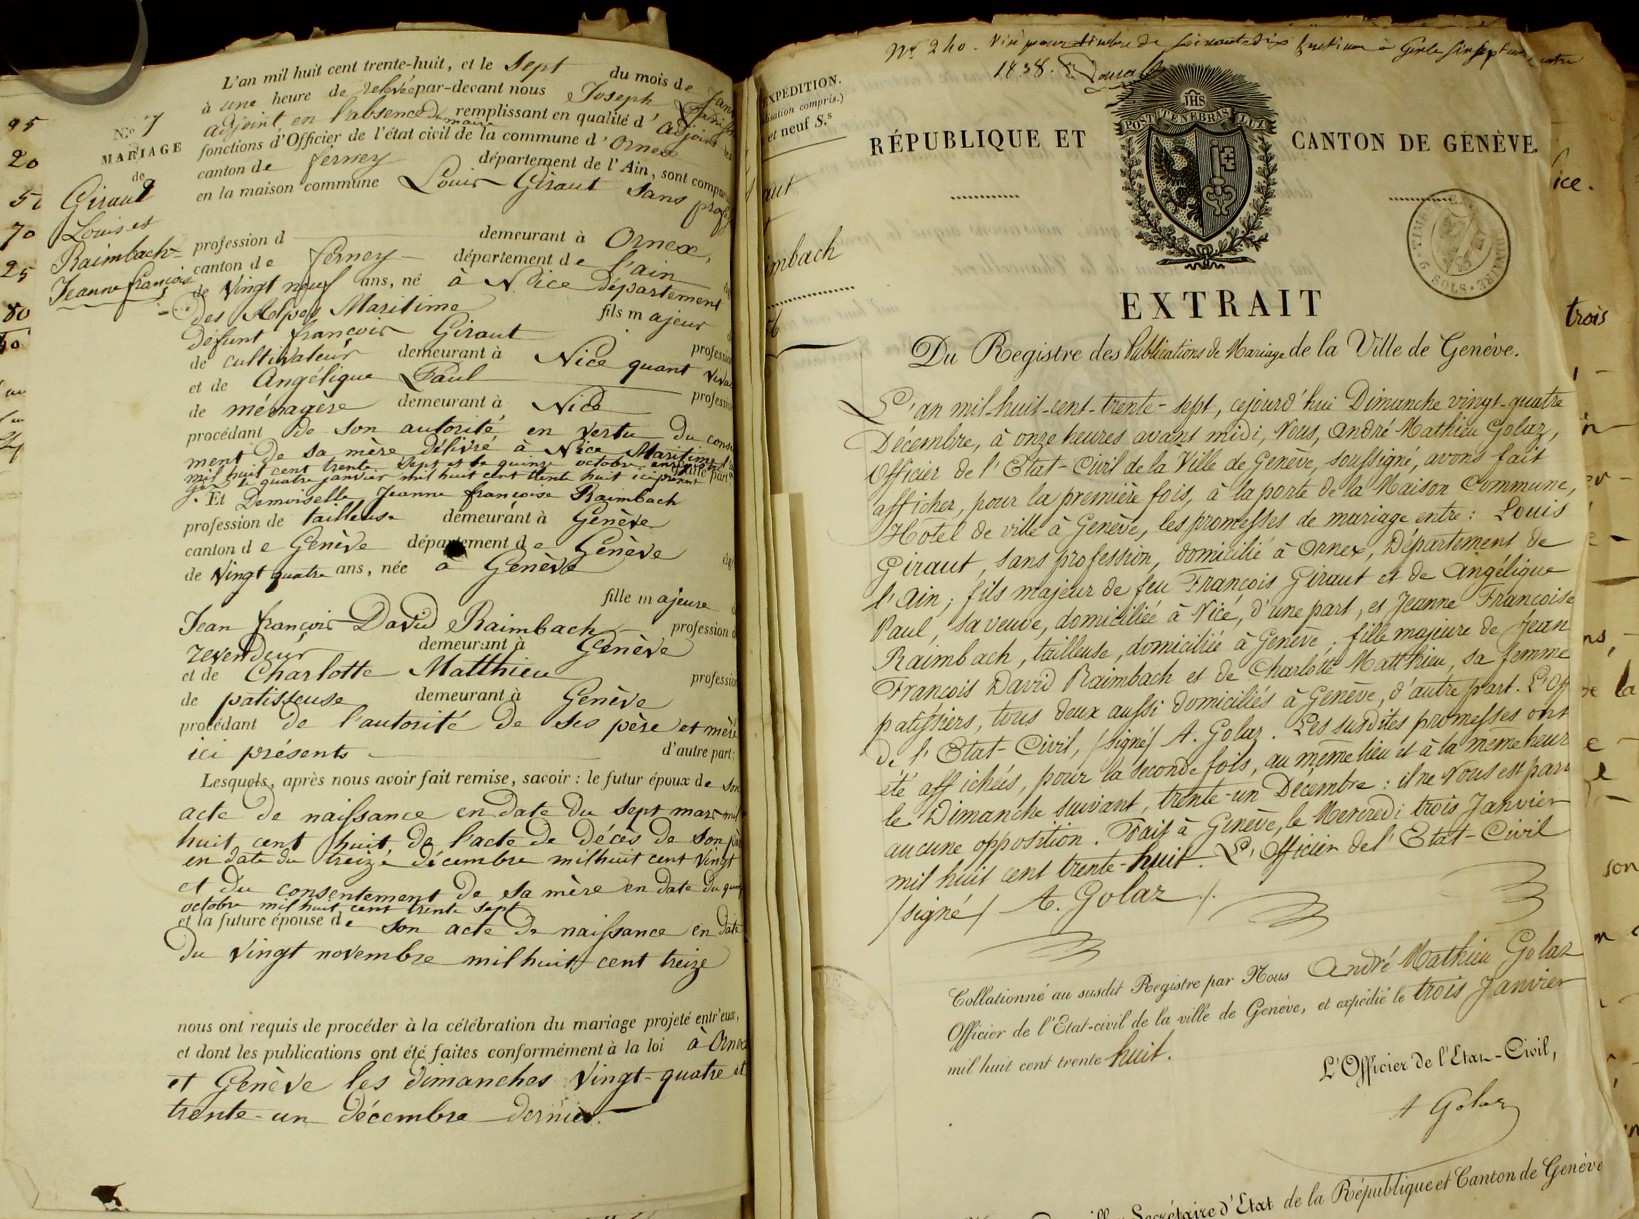 95
20
50
70
25
80
N.º 7
MARIAGE
de
Giraut
Louis et
Raimbach
Jeanne françoise
L'an mil huit cent trente-huit, et le sept du mois de
à une heure de relevée par-devant nous Joseph
adjoint en l'absence du maire remplissant en qualité d'adjoint
fonctions d'Officier de l'état civil de la commune d'Ornex
canton de ferney département de l'Ain, sont
en la maison commune Louis Giraut sans
profession d demeurant à Ornex,
canton de ferney département de l'ain
de vingt neuf ans, né à Nice département
des Alpes Maritime fils majeur
défunt françois Giraut
de cultivateur demeurant à Nice quant
et de Angélique Paul
de ménagère demeurant à Nice
procédant de son autorité en vertu du
ment de sa mère délivré à Nice Maritime
mil huit cent trente sept et le quinze octobre
quatre janvier mil huit cent trente huit
Et Demoiselle Jeanne françoise Raimbach
profession de tailleuse demeurant à Genève
canton de Genève département de Genève
de vingt quatre ans, née à Genève
fille majeure
Jean françois David Raimbach profession
revendeur demeurant à Genève
et de Charlotte Matthieu
de patisseuse demeurant à Genève
procédant de l'autorité de ses père et mère
ici présents d'autre part;
Lesquels, après nous avoir fait remise, savoir : le futur époux de son
acte de naissance en date du sept mars mil
huit cent huit de l'acte de décès de son
en date du treize décembre mil huit cent vingt
et du consentement de sa mère en date du
octobre mil huit cent trente sept
et la future épouse de son acte de naissance en date
du vingt novembre mil huit cent treize
nous ont requis de procéder à la célébration du mariage projeté entr'eux,
et dont les publications ont été faites conformément à la loi à Ornex
et Genève les dimanches vingt-quatre et
trente-un décembre dernier.
EXPÉDITION.
compris.)
et neuf S.s
Nº 240. Visé pour timbre de soixante dix centimes à
1838.
RÉPUBLIQUE ET CANTON DE GENÈVE.
JHS
POST TENEBRAS LUX
EXTRAIT
Du Registre des Publications de Mariage de la Ville de Genève.
L'an mil-huit-cent-trente-sept, cejourd'hui Dimanche vingt-quatre
Décembre, à onze heures avant midi, Nous, André Mathieu Golaz,
Officier de l'Etat-Civil de la Ville de Genève, soussigné, avons fait
afficher, pour la première fois, à la porte de la Maison Commune,
Hôtel de ville à Genève, les promesses de mariage entre: Louis
Giraut, sans profession, domicilié à Ornex, Département de
l'Ain; fils majeur de feu François Giraut et de Angélique
Paul, sa veuve, domiciliée à Nice, d'une part, et Jeanne Françoise
Raimbach, tailleuse, domiciliée à Genève; fille majeure de Jean
François David Raimbach et de Charlotte Matthieu, sa femme
patissiers, tous deux aussi domiciliés à Genève, d'autre part. L'Off
de l'Etat-Civil, (signé) A. Golaz. Les susdites promesses ont
été affichées, pour la seconde fois, au même lieu et à la même heure
le Dimanche suivant, trente-un Décembre: il ne Nous est parv
aucune opposition. Fait à Genève, le Mercredi trois Janvier
mil huit cent trente-huit. L'Officier de l'Etat-Civil
(signé) A. Golaz.
Collationné au susdit Registre par Nous André Mathieu Golaz
Officier de l'Etat-civil de la ville de Genève, et expédié le trois Janvier
mil huit cent trente huit.
L'Officier de l'Etat-Civil,
A Golaz
Secrétaire d'Etat de la République et Canton de Genève
trois